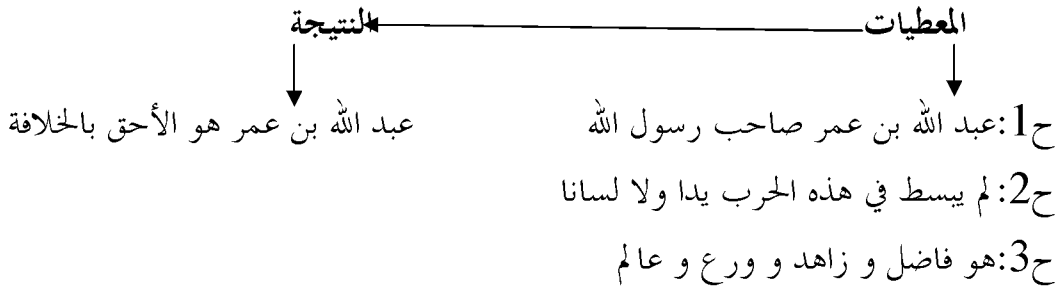 المعطيات النتيجة
ح1:عبد الله بن عمر صاحب رسول الله عبد الله بن عمر هو الأحق بالخلافة
ح2:لم يبسط في هذه الحرب يدا ولا لسانا
ح3:هو فاضل و زاهد و ورع و عالم